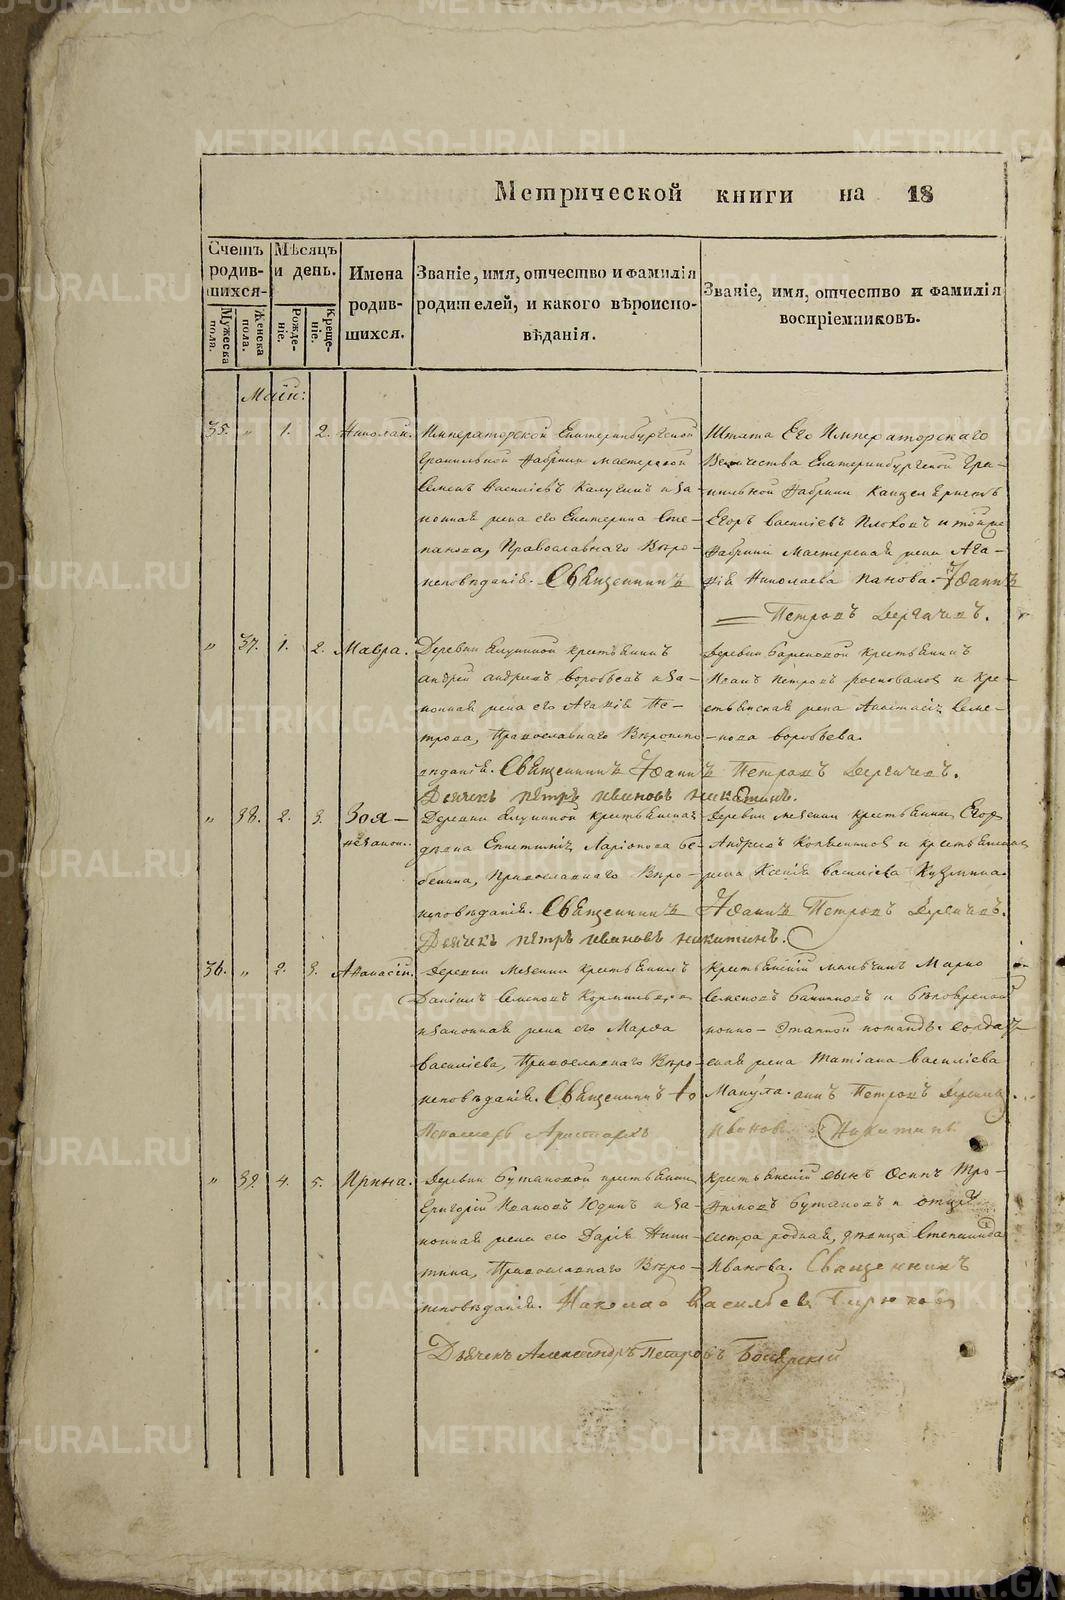 Метрической книги на 18
Счетъ родив-шихся.
Мѣсяцъ и день.
Имена родив-шихся.
Званіе, имя, отчество и фамилія родителей, и какого вѣроиспо-вѣданія.
Званіе, имя, отчество и фамилія воспріемниковъ.
Мужеска пола.
Женска пола.
Рожде-ніе.
Креще-ніе.
Маій:
35. " 1. 2. Николай.
Императорской Екатеринбургской
Гранильной Фабрики мастеровой
Семенъ Василіевъ Калугинъ и за-
конная жена его Екатерина Сте-
панова, Православнаго Вѣро-
исповѣданія. Священникъ
Штата Его Императорскаго
Величества Екатеринбургской Гра-
нильной Фабрики
Егоръ Василіевъ и той же
Фабрики Мастерская жена Ага-
фія Николаева Панова. Іоаннъ
Петровъ Дергачевъ.
" 37. 1. 2. Мавра.
Деревни крестьянинъ
Андрей Андреевъ Воробьевъ и за-
конная жена его Агафія Пе-
трова, Православнаго Вѣроиспо-
вѣданія. Священникъ Іоаннъ
Дьячекъ Петръ Ивановъ Никитинъ.
Деревни крестьянинъ
Иванъ Петровъ и кре-
стьянская жена Анастасія Семе-
нова Воробьева.
Петровъ Дергачевъ.
" 38. 2. 3. Зоя – незакон.
Деревни крестьянская
дѣвка Ларіонова Бе-
бенина, Православнаго Вѣро-
исповѣданія. Священникъ
Дьячекъ Петръ Ивановъ Никитинъ.
Деревни Мезенки крестьянинъ Егоръ
Андреевъ и крестьянская
жена Ксенія Василіева Кузмина.
Іоаннъ Петровъ Дергачевъ.
36. " 2. 3. Афанасій.
Деревни Мезенки крестьянинъ
Даніилъ Семеновъ
и законная жена его Марфа
Василіева, Православнаго Вѣро-
исповѣданія. Священникъ Іо
Пономарь Аристархъ
Крестьянскій мальчикъ Марко
Семеновъ и Бѣлоярской
конно-этапной команды солдат-
ская жена Татіана Василіева
Макула. аннъ Петровъ Дергачевъ.
Ивановъ Никитинъ
" 39. 4. 5. Ирина.
Деревни Бутаковой крестьянинъ
Григорій Ивановъ Юдинъ и за-
конная жена его Дарія Ники-
тина, Православнаго Вѣро-
исповѣданія. Николао Васильевъ Бирюковъ
Дьячекъ Александръ Петровъ Боярскій
Крестьянскій сынъ Осипъ Тро-
фимовъ Бутаковъ и отцу
сестра родная, дѣвица Степанида
Иванова. Священникъ